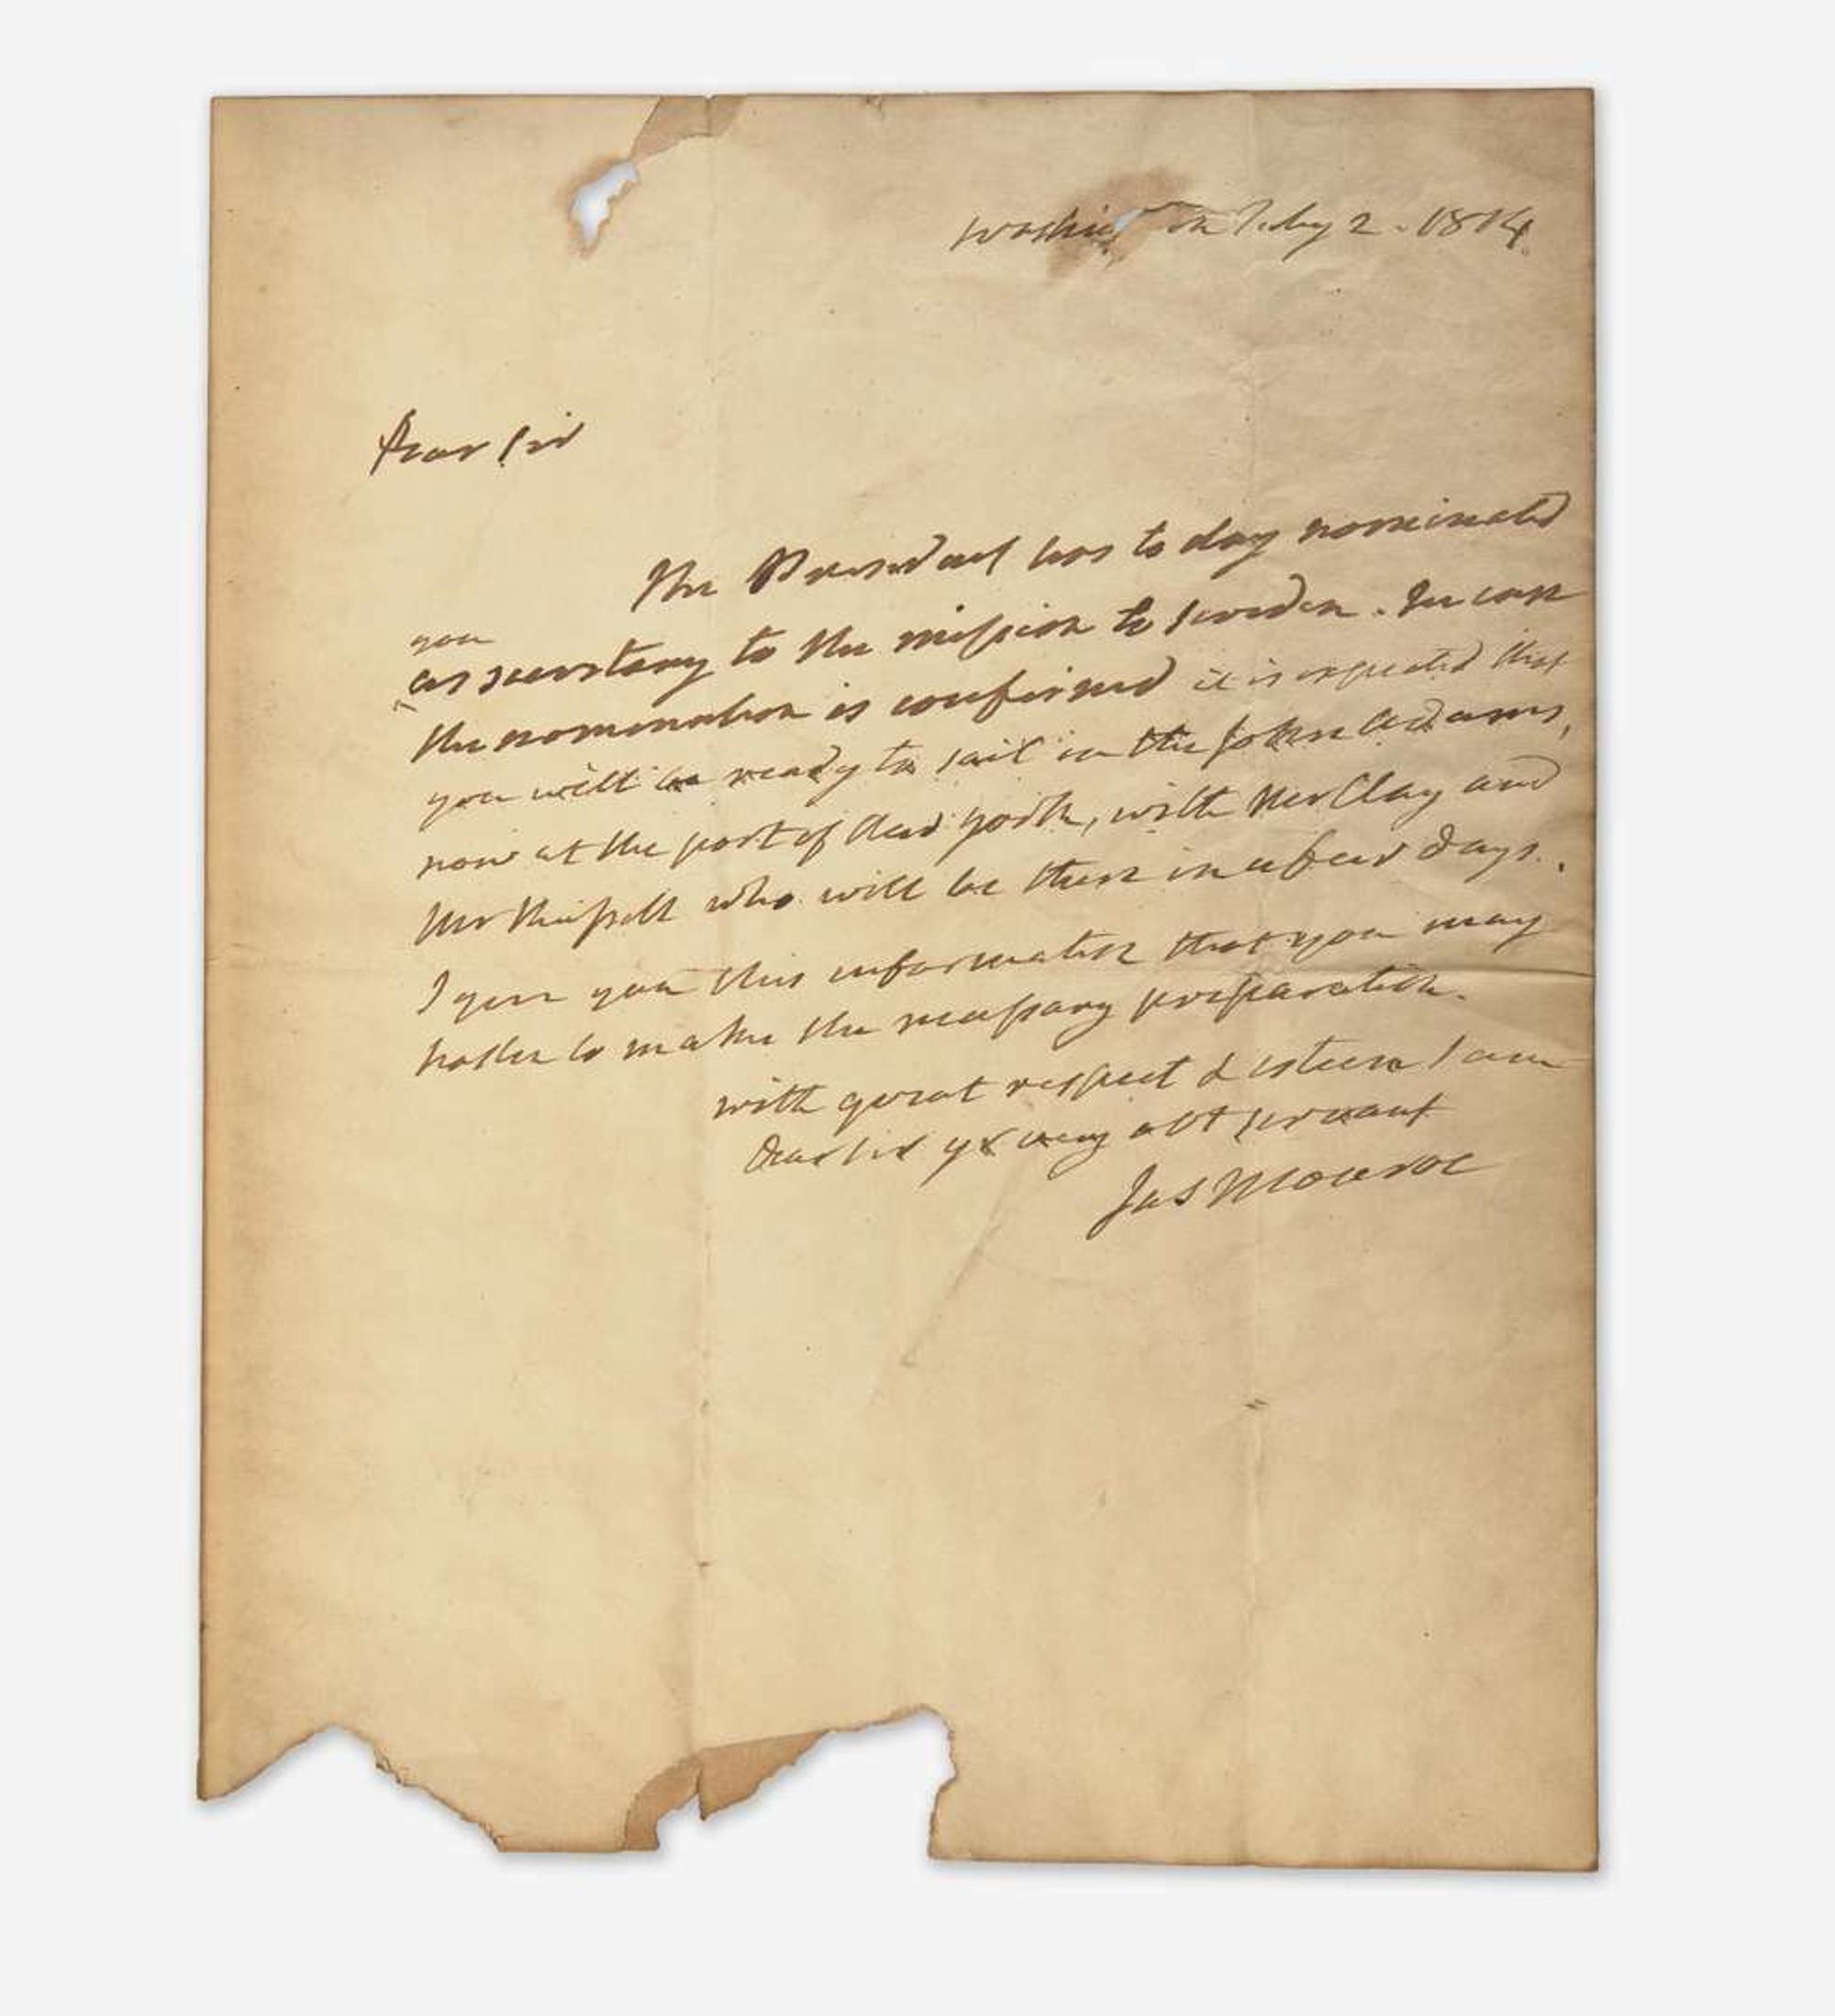 Washin on Feby 2. 1814.
Dear Sir
The President has to day nominated
you
as secretary to the mission to Sweden. In case
the nomination is confirmed it is expected that
you will be ready to sail in the John Adams,
now at the port of New York, with Mr Clay and
Mr Russell who will be there in a few days.
I give you this information that you may
hasten to make the necessary preparation.
with great respect & esteem I am
Dear Sir yr very obt servant
Jas Monroe